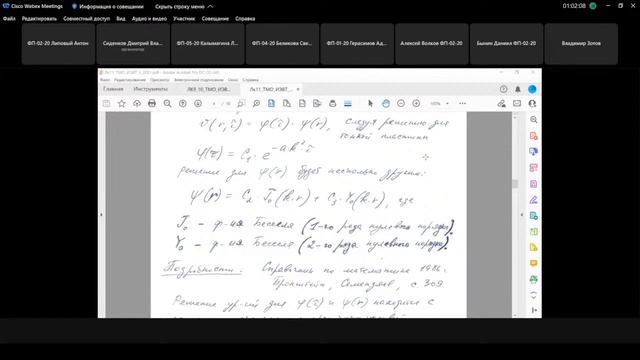 Cisco Webex Meetings
Информация о совещании
Скрыть строку меню
01:02:08
Файл Редактировать Совместный доступ Вид Аудио и видео Участник Совещание Справка
ФП-02-20 Липовый Антон
Сиденков Дмитрий Вла...
организатор
ФП-05-20 Калымагина Л...
ФП-04-20 Беликова Све...
ФП-01-20 Герасимов Ад...
Алексей Волков ФП-02-20
Бынин Даниил ФП-02-20
Владимир Зотов
Главная Инструменты
100%
ϑ(r,τ) = φ(τ)·ψ(r), следуя решению для
тонкой пластины
φ(τ) = C₁·e^-ak²·τ
решение для ψ(r) будет несколько другим:
ψ(r) = C₂ J₀(k·r) + C₃·Y₀(k·r), где
J₀ – ф-ия Бесселя (1-го рода нулевого порядка).
Y₀ – ф-ия Бесселя (2-го рода нулевого порядка).
Подробности: Справочник по математике 1986.
Бронштейн, Семендяев, с. 309.
Решения ур-ий для φ(τ) и ψ(r) находится с